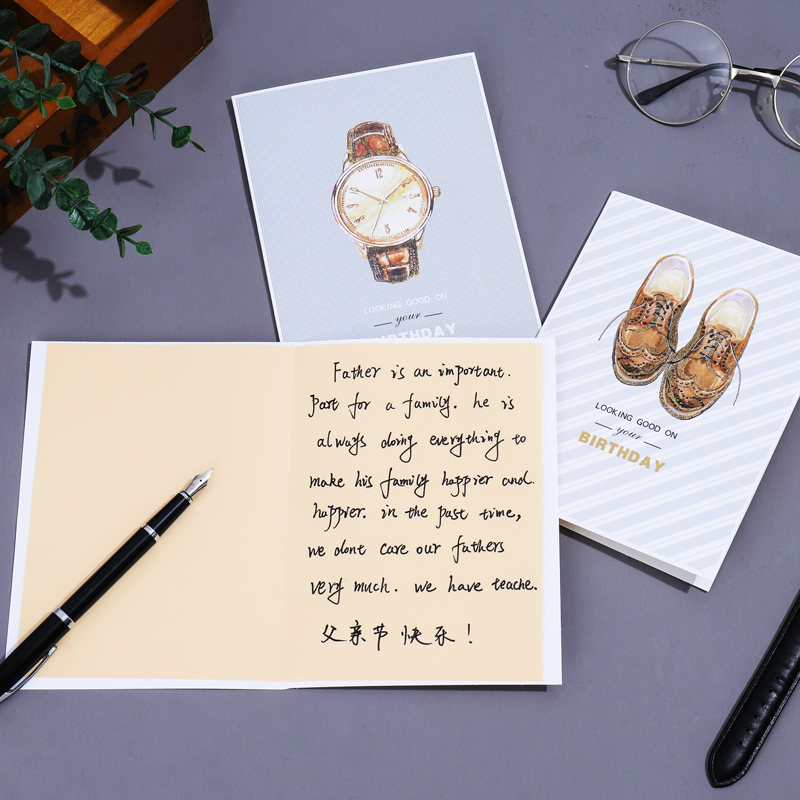 LOOKING GOOD ON
your
BIRTHDAY
LOOKING GOOD ON
your
BIRTHDAY
Father is an important.
part for a family. he is
always doing everything to
make his family happier and.
happier. in the past time,
we dont care our fathers
very much. we have teache.
父亲节快乐!